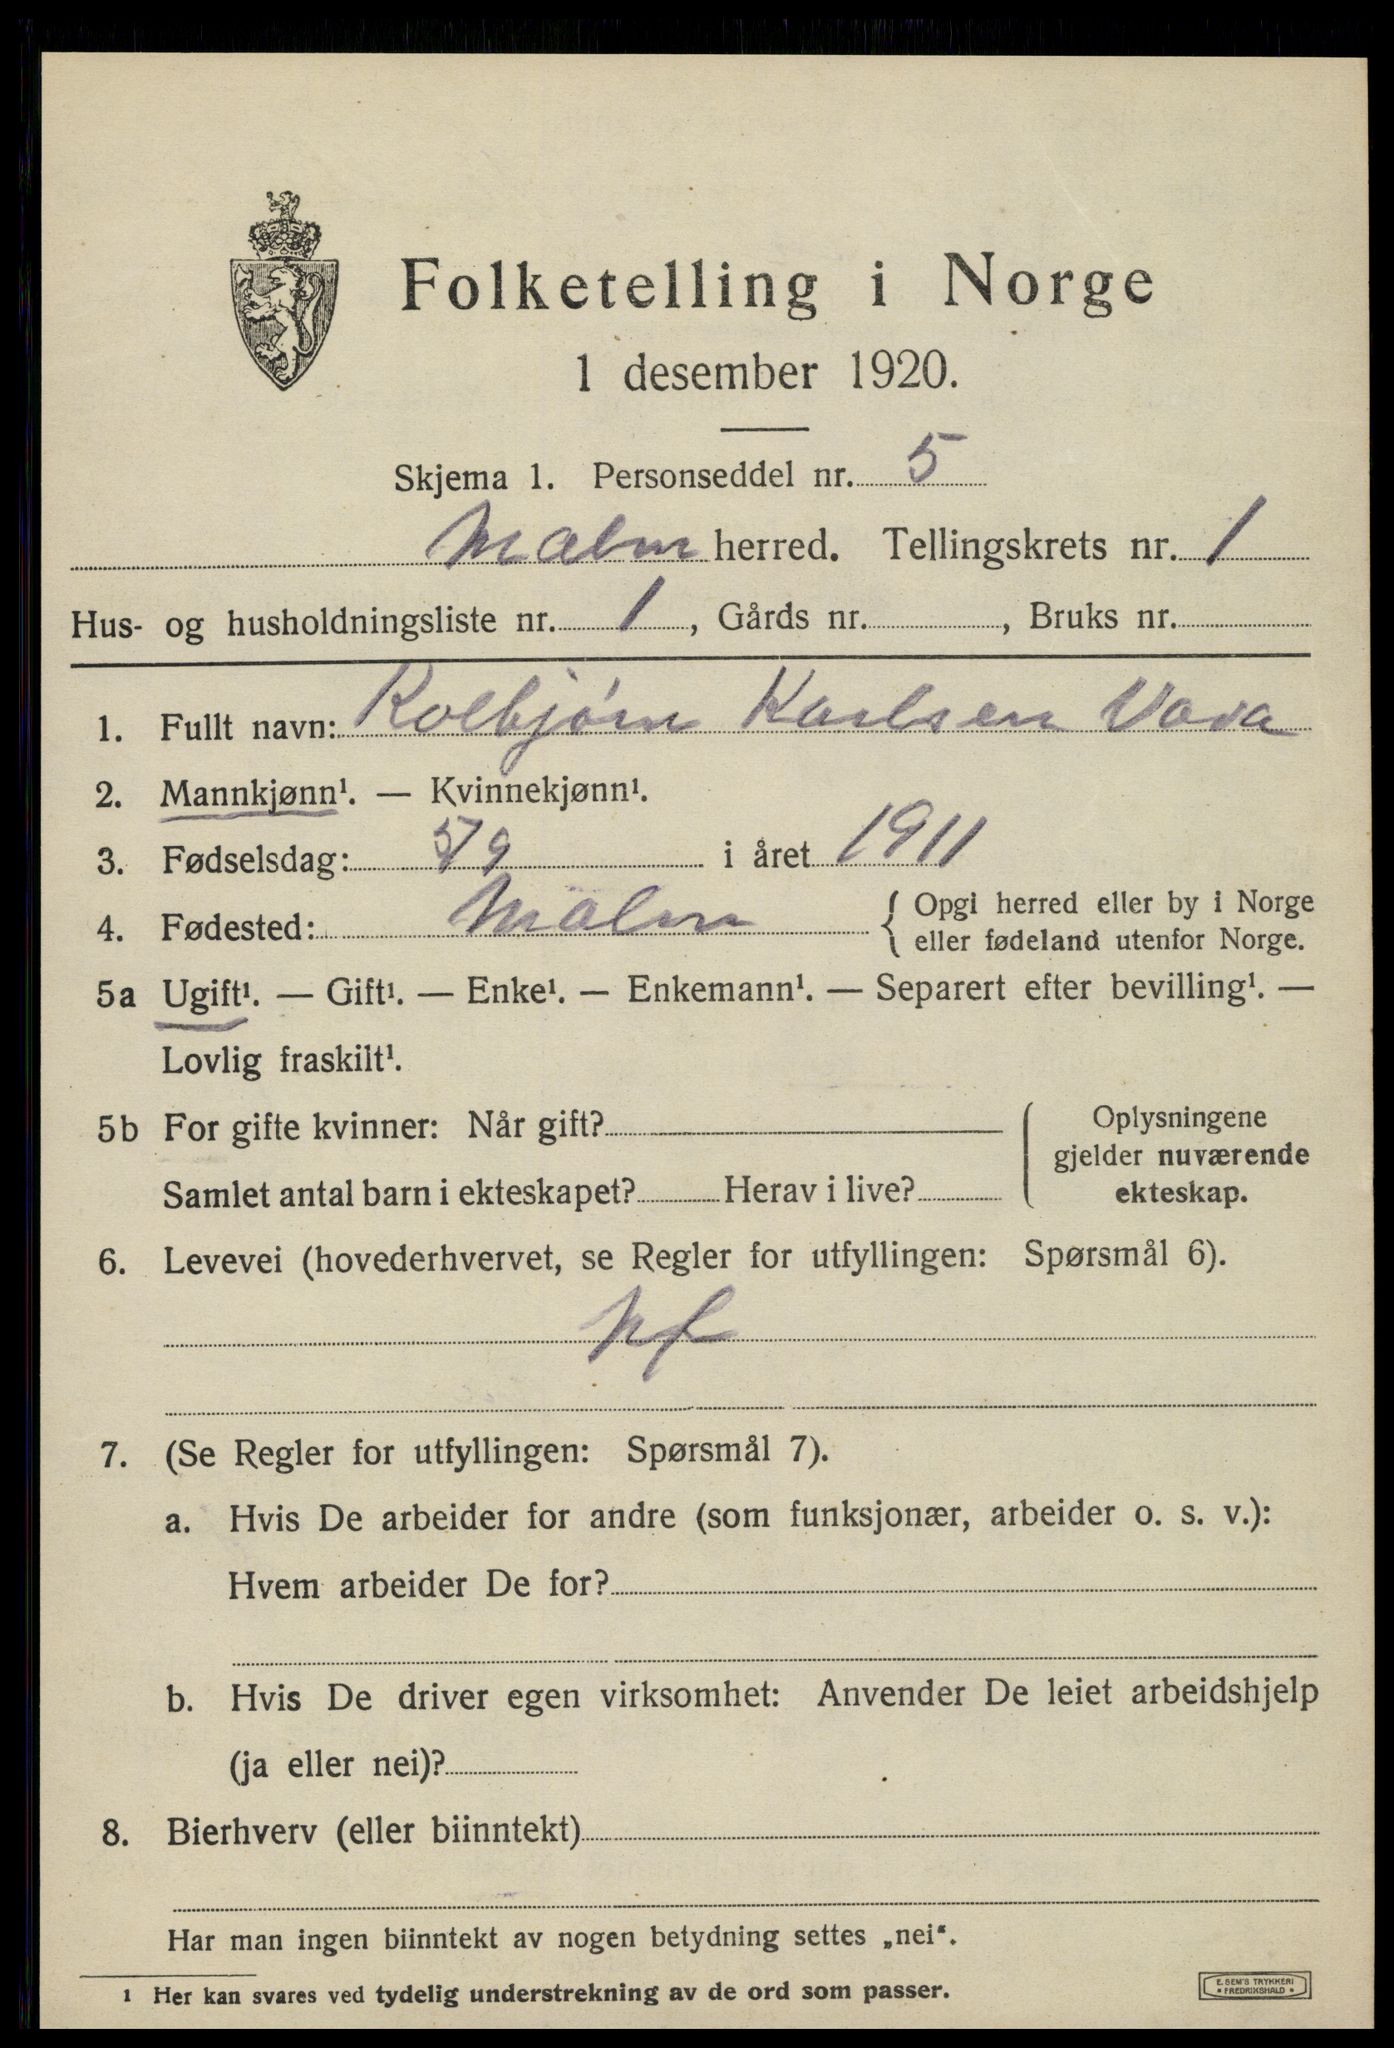 Folketelling i Norge
1 desember 1920.
Skjema 1. Personseddel nr. 5
Malm herred. Tellingskrets nr. 1
Hus- og husholdningsliste nr. 1, Gårds nr. , Bruks nr.
1. Fullt navn: Kolbjørn Karlsen Vada
2. Mannkjønn¹. — Kvinnekjønn¹.
3. Fødselsdag: 5/9 i året 1911
4. Fødested: Malm { Opgi herred eller by i Norge
eller fødeland utenfor Norge.
5a Ugift¹. — Gift¹. — Enke¹. — Enkemann¹. — Separert efter bevilling¹. —
Lovlig fraskilt¹.
5b For gifte kvinner: Når gift? Oplysningene
gjelder nuværende
Samlet antal barn i ekteskapet? Herav i live? ekteskap.
6. Levevei (hovederhvervet, se Regler for utfyllingen: Spørsmål 6).
7. (Se Regler for utfyllingen: Spørsmål 7).
a. Hvis De arbeider for andre (som funksjonær, arbeider o. s. v.):
Hvem arbeider De for?
b. Hvis De driver egen virksomhet: Anvender De leiet arbeidshjelp
(ja eller nei)?
8. Bierhverv (eller biinntekt)
Har man ingen biinntekt av nogen betydning settes „nei“.
1 Her kan svares ved tydelig understrekning av de ord som passer.
E. SEM'S TRYKKERI
• FREDRIKSHALD •